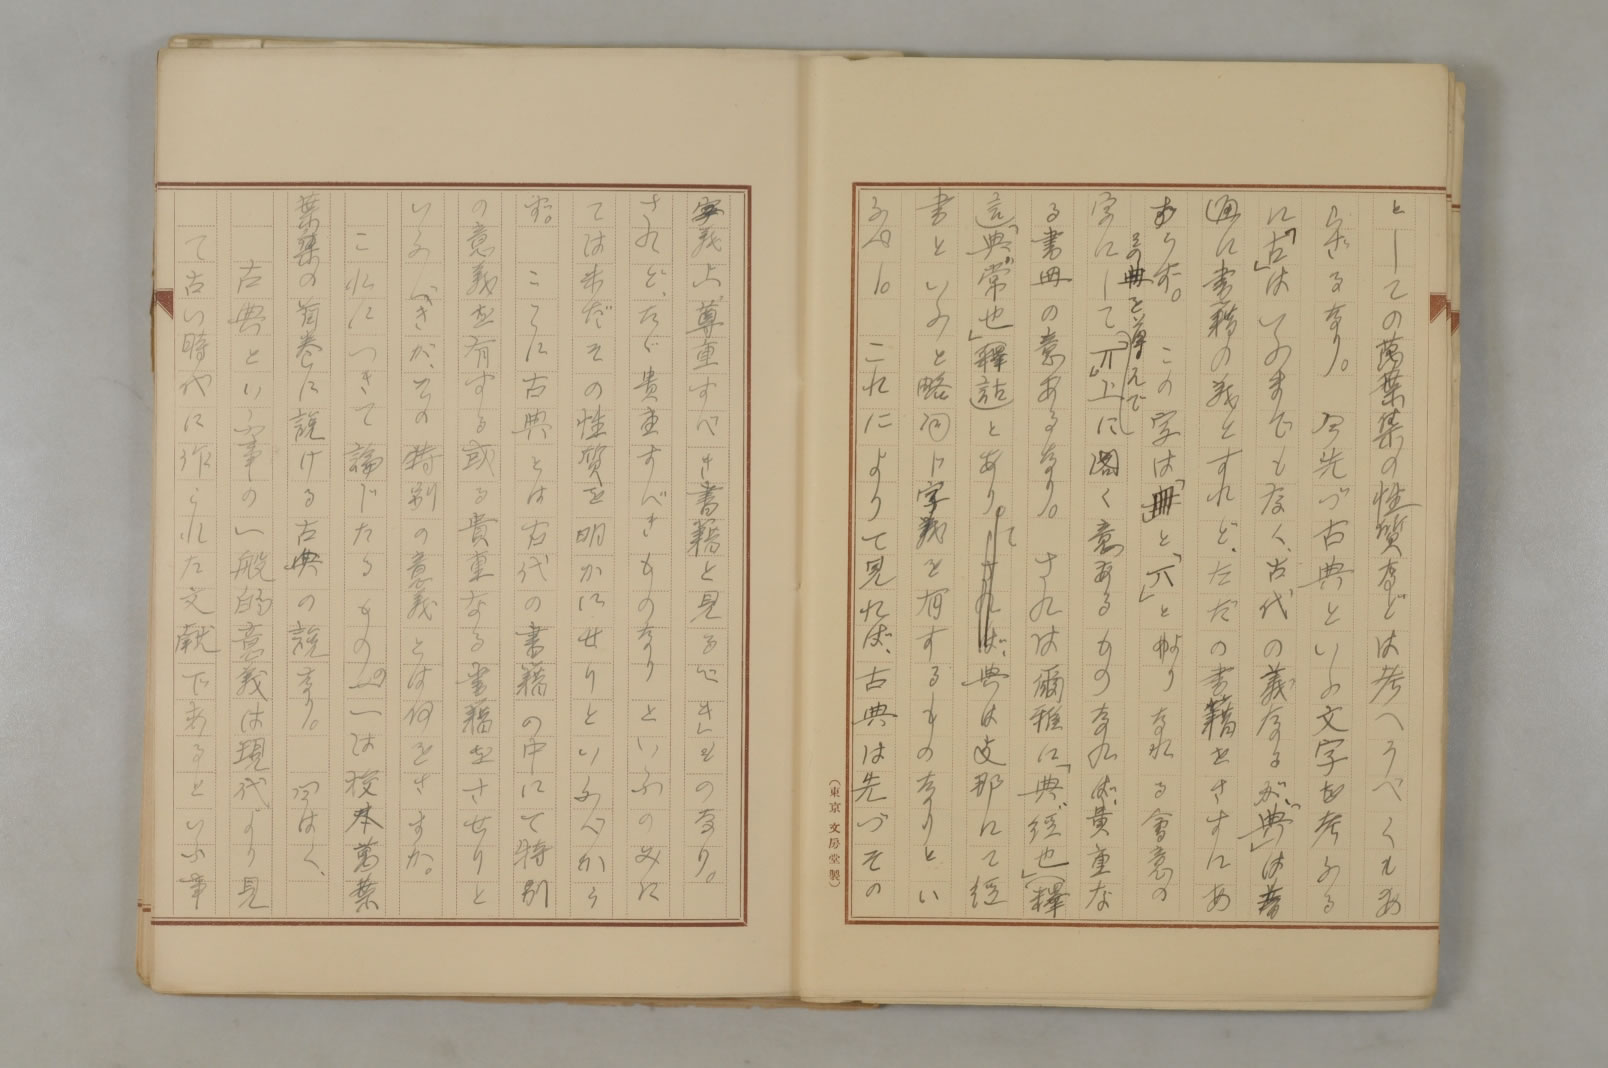 としての萬葉集の性質などは考へうべくもあ
らざるなり。 今先づ古典といふ文字を考ふる
に「古」はいふまでもなく、古代の義なるが、「典」は普
通に書籍の義とすれど、ただの書籍をさすにあ
らず。 この字は「冊」と「丌」と
なれる會意の
字にして「丌」上に閣く意あるものなれば、貴重な
る書冊の意あるなり。 されば爾雅に「典、經也」（釋
言）「典、常也」（釋詁）とあり。 典は支那にて經
書といふと略同じ字義を有するものなりとい
ふべし。 これによりて見れば、古典は先づその
（東京 文房堂製）
字義上、尊重すべき書籍と見るべきものなり。
されど、たゞ貴重すべきものなりといふのみに
ては未だその性質を明かにせりといふべから
ず。 ここに古典とは古代の書籍の中にて特別
の意義を有する或る貴重なる書籍をさせりと
いふべきが、その特別の意義とは何をさすか。
これにつきて論じたるものの一は校本萬葉
葉集の首巻に説ける古典の説なり。 曰はく、
古典といふ事の一般的意義は現代より見
て古い時代に作られた文献であるといふ事